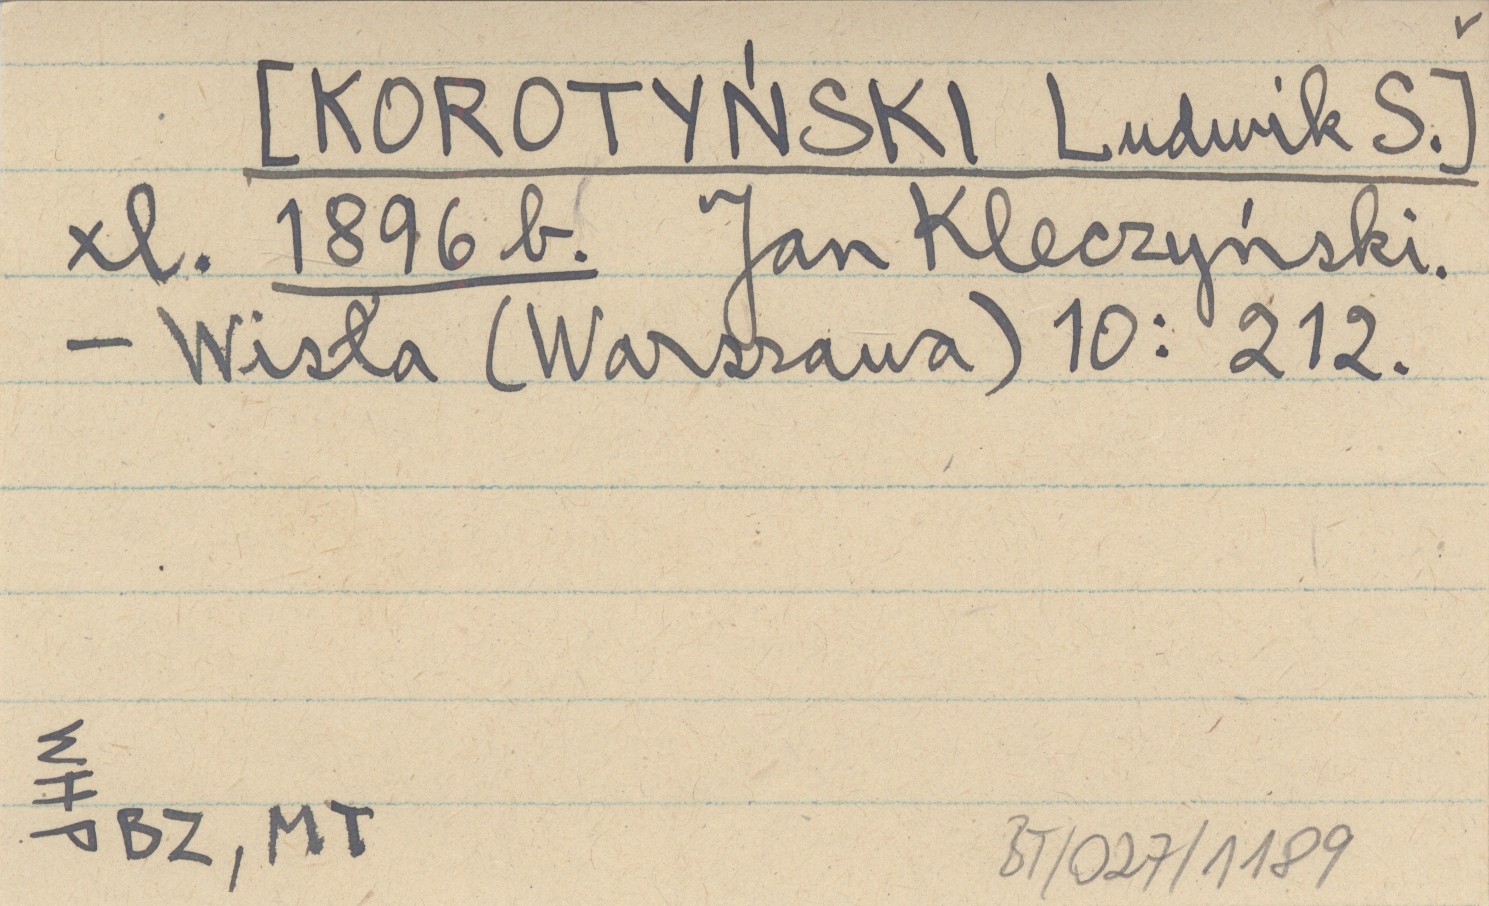 [KOROTYŃSKI Ludwik S.]
xl. 1896 b. Jan Kleczyński.
– Wisła (Warszawa) 10: 212.
WHP
BZ, MT
BT/027/1189